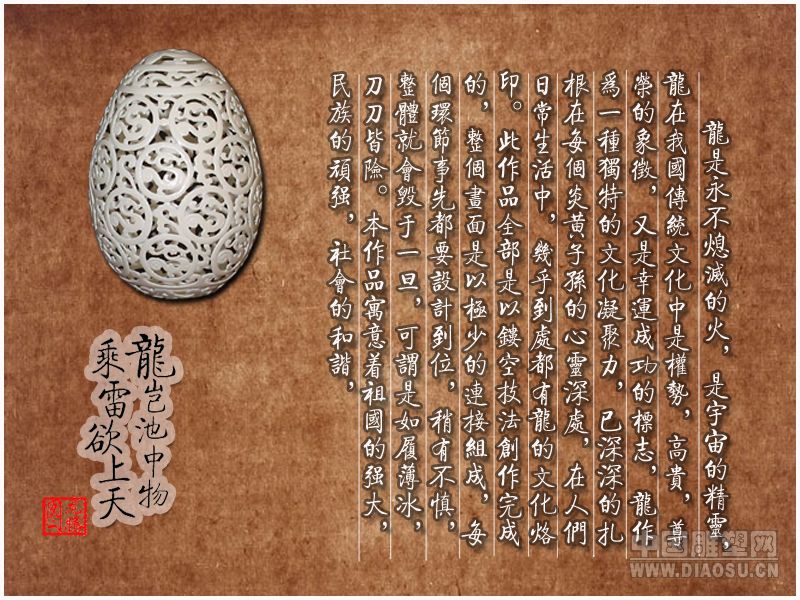 龍是永不熄滅的火，是宇宙的精靈，
龍在我國傳統文化中是權勢，高貴，尊
榮的象徵，又是幸運成功的標志，龍作
爲一種獨特的文化凝聚力，已深深的扎
根在每個炎黃子孫的心靈深處，在人們
日常生活中，幾乎到處都有龍的文化烙
印。此作品全部是以鏤空技法創作完成
的，整個畫面是以極少的連接組成，每
個環節事先都要設計到位，稍有不慎，
整體就會毀于一旦，可謂是如履薄冰，
刀刀皆險。本作品寓意着祖國的强大，
民族的頑强，社會的和諧，
龍豈池中物
乘雷欲上天
中国雕塑网
WWW.DIAOSU.CN